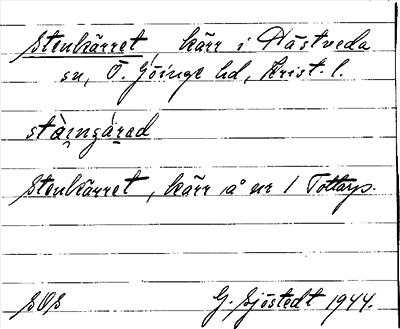 Stenkärret, kärr i Hästveda
sn, Ö. Göinge hd, Krist. l.
Stenkärret, kärr å nr 1 Tottarp.
SOS G. Sjöstedt 1944.